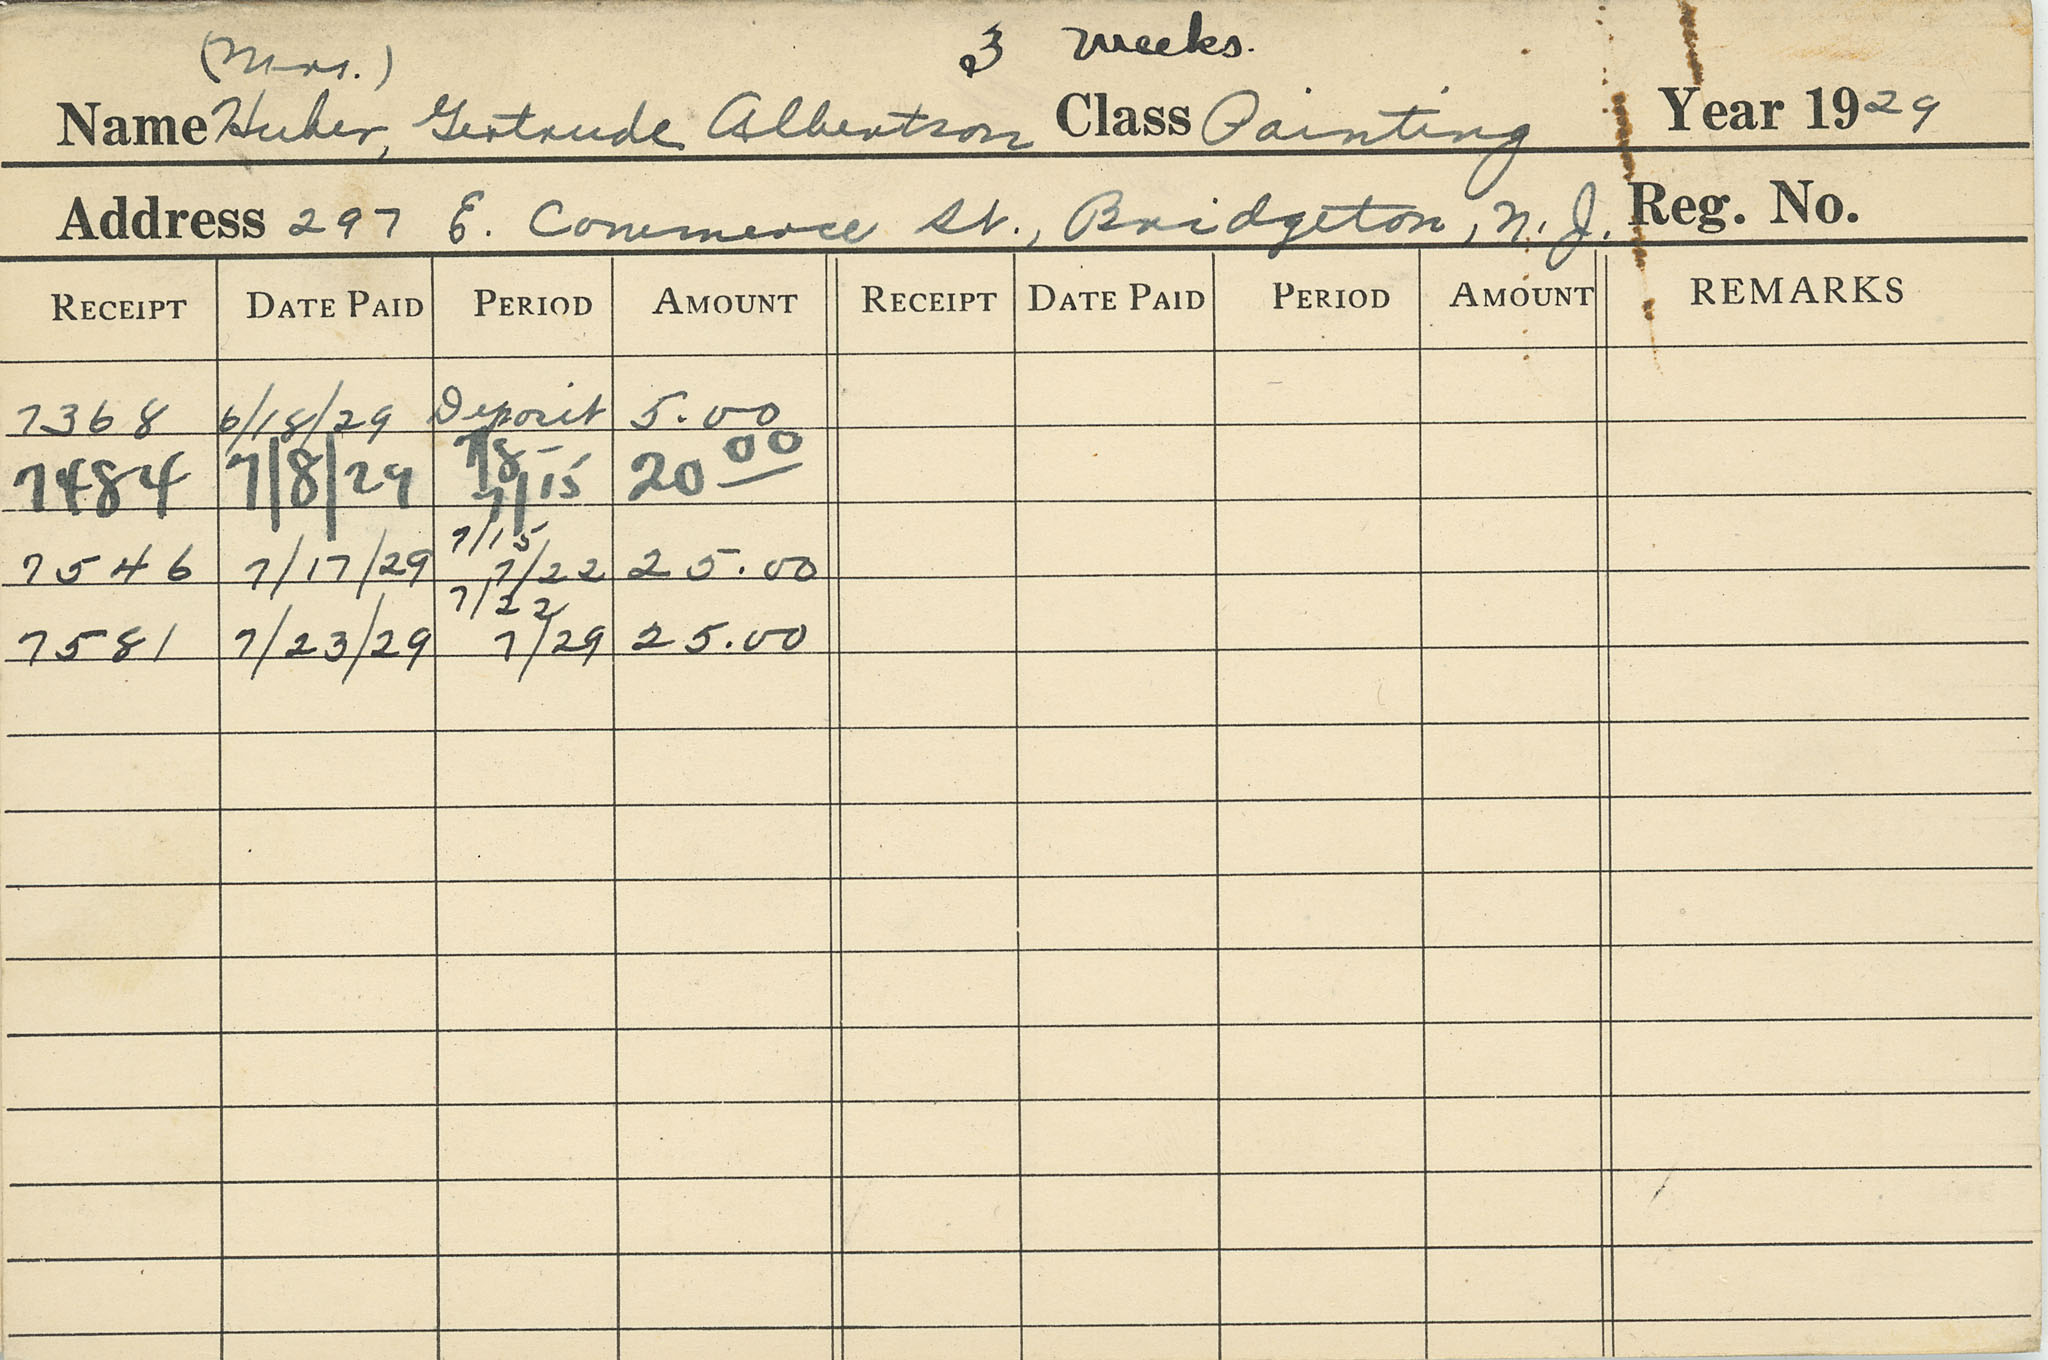 (Mrs.) 3 Weeks.
Name Huber, Gertrude Albertson Class Painting Year 1929
Address 297 E. Commerce St., Bridgeton, N. J. Reg. No.
RECEIPT DATE PAID PERIOD AMOUNT RECEIPT DATE PAID PERIOD AMOUNT REMARKS
7368 6/18/29 Deposit 5.00
7484 7/8/29 7/8- 7/15 20 00
7546 7/17/29 7/15 7/22 25.00
7581 7/23/29 7/22 7/29 25.00